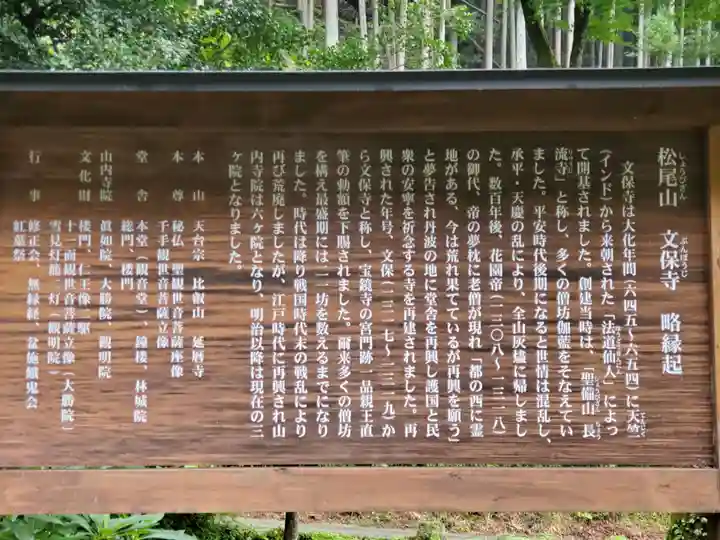 松尾山　文保寺　略縁起
しょうびざん　ぶんぽうじ
文保寺は大化年間(六四五〜六五四)に天竺
(インド)から来朝された「法道仙人」によっ
て開基されました。創建当時は、「聖備山 長
流寺」と称し、多くの僧坊伽藍をそなえてい
ました。平安時代後期になると世情は混乱し、
承平・天慶の乱により、全山灰燼に帰しまし
た。数百年後、花園帝(一三〇八〜一三一八)
の御代、帝の夢枕に老僧が現れ「都の西に霊
地がある、今は荒れ果てているが再興を願う」
と夢告され丹波の地に堂舎を再興し護国と民
衆の安寧を祈念する寺を再建されました。再
興された年号、文保(一三一七〜一三一九)か
ら文保寺と称し、宝鏡寺の宮門跡一品親王直
筆の勅額を下賜されました。爾来多くの僧坊
を構え最盛期には二一坊を数えるまでになり
ました。時代は降り戦国時代末の戦乱により
再び荒廃しましたが、江戸時代に再興され山
内寺院は六ヶ院となり、明治以降は現在の三
ヶ院となりました。
本山　天台宗　比叡山　延暦寺
本尊　秘仏　聖観世音菩薩座像
千手観世音菩薩立像
堂舎　本堂(観音堂)、鐘楼、林城院
総門、楼門
山内寺院　眞如院、大勝院、観明院
文化財　楼門、仁王像二躯
十一面観世音菩薩立像(大勝院)
雪見灯籠一灯(観明院)
行事　修正会、無縁経、盆施餓鬼会
紅葉祭